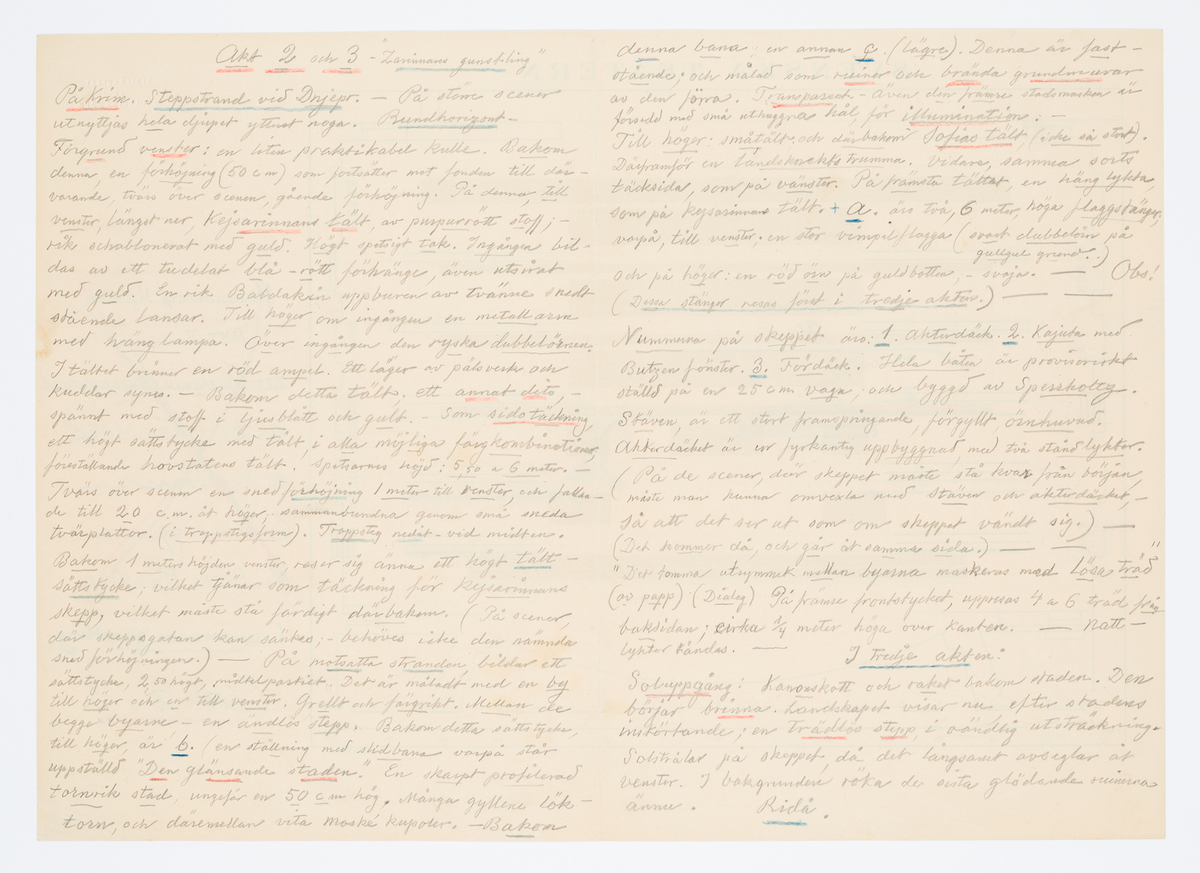 Akt 2 och 3 - "Zarinnans gunstling"
På Krim. Steppstrand vid Dnjepr. — På större scener
utnyttjas hela djupet ytterst noga. Rundhorizont —
Förgrund venster: en liten praktikabel kulle. Bakom
denna, en förhöjning (50 cm) som fortsätter mot fonden till där-
varande, tvärs över scenen, gående förhöjning. På denna, till
venster, längst ner, Kejsarinnans tält, av purpurrött stoff; —
rik schablonerat med guld. Högt spetsigt tak. Ingången bil-
das av ett tudelat blå - rött förhänge, även utsirat
med guld. En rik Baldakin uppburen av tvänne snedt
stående lansar. Till höger om ingången en metallarm
med hänglampa. Över ingången den ryska dubbelörnen.
I tältet brinner en röd ampel. Ett läger av pälsverk och
kuddar synes. — Bakom detta tält, ett annat dito, —
spännt med stoff i ljusblått och gult. — Som sidotäckning,
ett högt sättstycke med tält, i alla möjliga färgkombinationer,
föreställande hovstatens tält. Spetsarnes höjd: 5,50 a 6 meter. —
Tvärs över scenen en sned förhöjning 1 meter till venster, och fallan-
de till 20 c.m. åt höger, sammanbundna genom små sneda
tvärplattor. (i trappstegsform). Trappsteg nedåt - vid midten.
Bakom 1 meters höjden venster, reser sig ännu ett högt tält -
sättstycke; vilket tjänar som täckning för Kejsarinnans
skepp, vilket måste stå färdigt därbakom. (På scener,
där skeppsgatan kan sänkes; — behöves icke den nämnda
sned förhöjningen.) — På motsatta stranden, bildar ett
sättstycke, 2,50 högt, midtelpartiet. Det är måladt med en by
till höger och en till venster. Grellt och färgrikt. Mellan de
begge byarne — en ändlös stepp. Bakom detta sättstycke,
till höger, är b. (en ställning med slidbana varpå står
uppställd "Den glänsande staden." En skarpt profilerad
tornrik stad, ungefär en 50 c m hög. Många gyllene lök-
torn, och däremellan vita moské kupoler. — Bakom
denna bana en annan c. (lägre). Denna är fast -
stående; och målad som ruiner och brända grundmurar
av den förra. Transparent — Även den främre stadsmasken är
försedd med små uthuggna hål för illumination. —
Till höger: småtält och därbakom Sofias tält, (icke så stort).
Däframför en landsknekts trumma. Vidare, samma sorts
täcksida, som på vänster. På främsta tältet, en häng lykta,
som på kejsarinnans tält. + a. äro två, 6 meter, höga flaggstänger;
varpå, till venster: en stor vimpelflagga (svart dubbelörn på
gullgul grund.)
och på höger: en röd örn på guldbotten, — svaja. — Obs!
(Dessa stänger resas först i tredje akten.) — —
Nummerna på skeppet äro: 1. Akterdäck. 2. Kajuta med
Butzen fönster. 3. Fördäck. Hela båten är provisoriskt
ställd på en 25 c m. vagn; och byggd av Sperrholtz.
Stäven, är ett stort framspringande, förgyllt örnhuvud.
Akterdäcket är en fyrkantig uppbyggnad med två ståndlyktor.
(På de scener, där skeppet måste stå kvar från början,
måste man kunna omvexla med stäven och akterdäcket, —
så att det ser ut som om skeppet vändt sig.) —
(Det kommer då, och går åt samma sida.) — —
"Det tomma utrymmet mellan byarna maskeras med lösa träd"
(av papp) (Dialog) På främre frontstycket, uppresas 4 a 6 träd från
baksidan; cirka 3/4 meter höga över kanten. — Natt-
lyktor tändas. —
I tredje akten:
Soluppgång: Kanonskott och raket bakom staden. Den
börjar brinna. Landskapet visar nu efter stadens
inskörtande; en trädlös stepp i oändlig utsträckning.
Solstrålar på skeppet då det långsamt avseglar åt
venster. I bakgrunden röka de sista glödande ruinerna
ännu. Ridå.